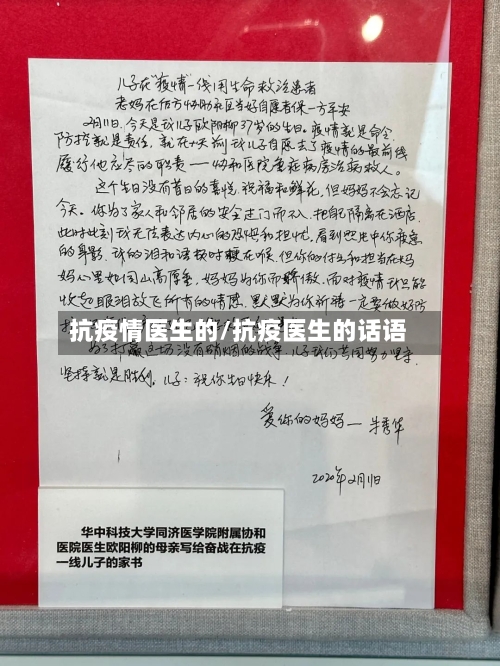 儿子在"疫情"一线用生命救治患者
老妈在后方协助社区当好自愿者保一方平安
2月11日,今天是我儿子欧阳柳37岁的生日。疫情就是命令,
防控就是责任,就在十天前我儿子自愿去了疫情的最前线
履行他应尽的职责——协和医院重症病房治病救人。
这个生日没有昔日的喜悦,祝福和鲜花,但妈妈不会忘记
今天。你为了家人和邻居的安全过门而不入,把自己隔离在酒店,
此时此刻我无法表达内心的恐惧和担忧,看到照片中你疲惫
的身影,我的泪和话顿时哽在喉,但你的付出和担当在妈
妈心里如同山高厚重,妈妈为你而骄傲,面对疫情我只能
收起眼泪放飞所有的情愿,默默为你祈祷一定要做好防
抗疫情医生的/抗疫医生的话语
为了打赢这场没有硝烟的战争,儿子我们共同努力坚守,
坚持就是胜利。儿子:祝你生日快乐!
爱你的妈妈——牛秀华
2020年2月11日
华中科技大学同济医学院附属协和
医院医生欧阳柳的母亲写给奋战在抗疫
一线儿子的家书